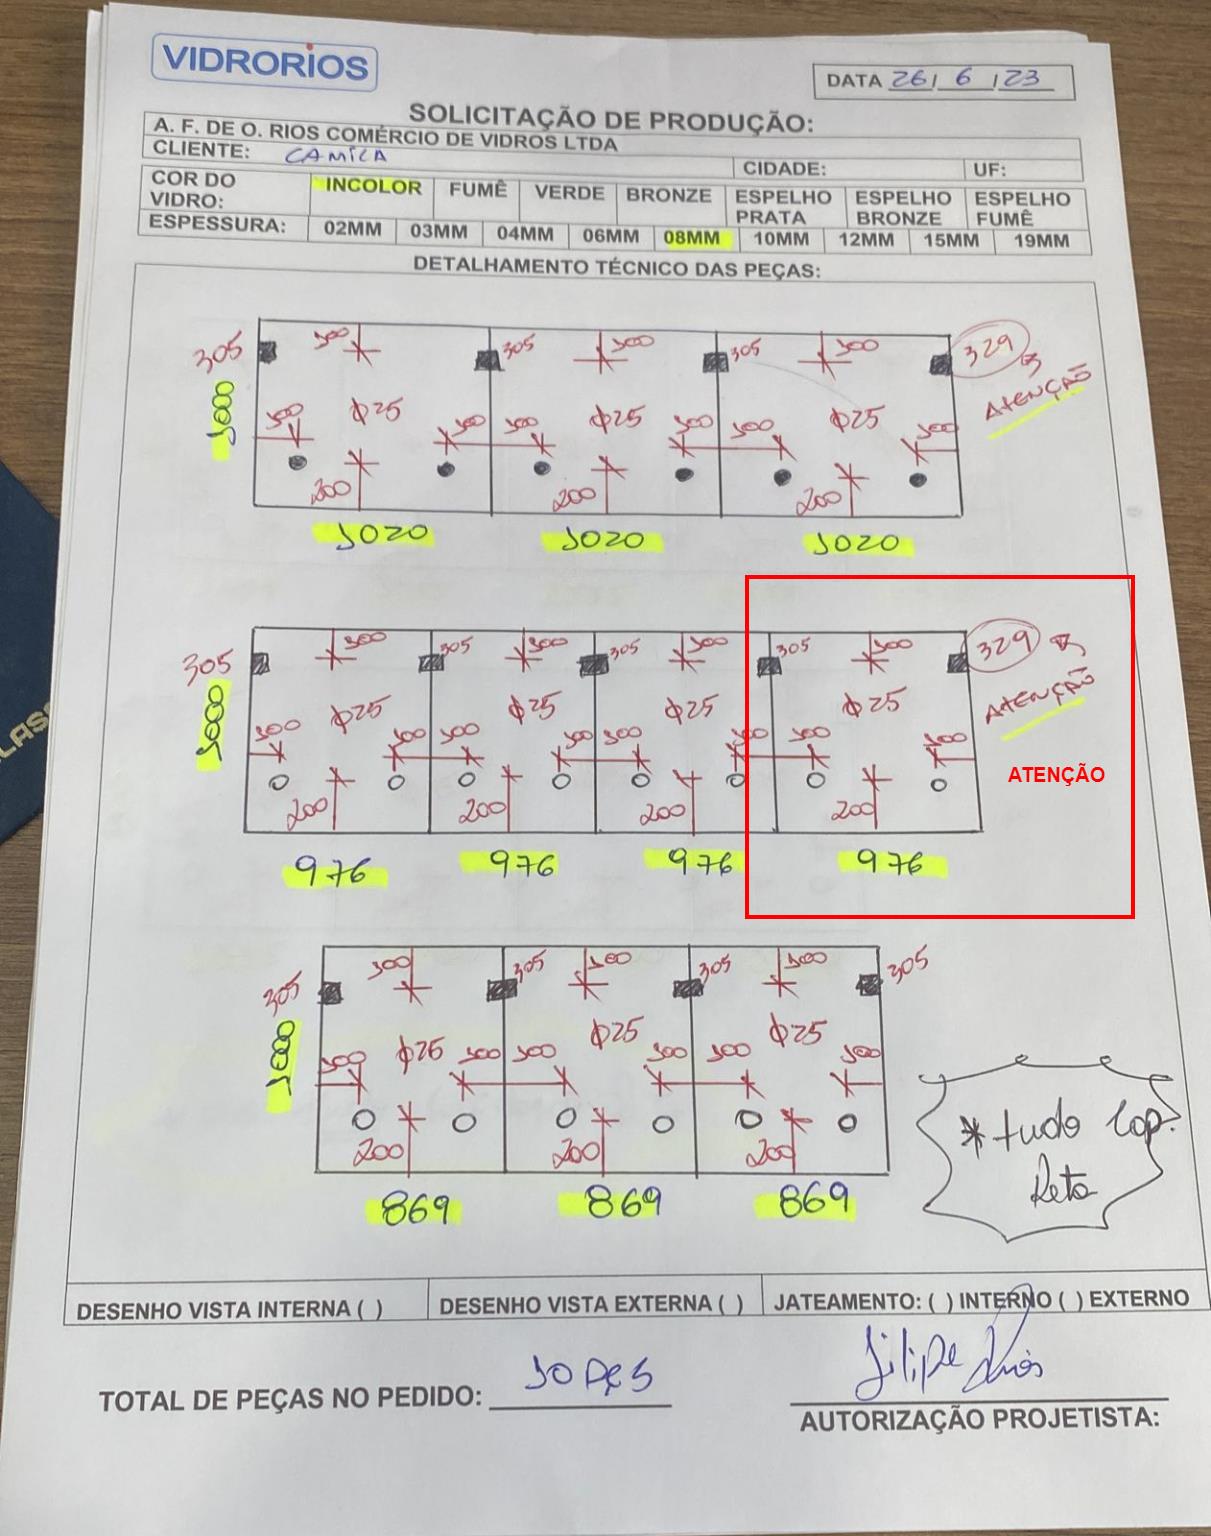 VIDRORIOS
DATA 26/6/23
SOLICITAÇÃO DE PRODUÇÃO:
A. F. DE O. RIOS COMÉRCIO DE VIDROS LTDA
CLIENTE: CAMILA CIDADE: UF:
COR DO VIDRO: INCOLOR FUMÊ VERDE BRONZE ESPELHO PRATA ESPELHO BRONZE ESPELHO FUMÊ
ESPESSURA: 02MM 03MM 04MM 06MM 08MM 10MM 12MM 15MM 19MM
DETALHAMENTO TÉCNICO DAS PEÇAS:
305 100 305 100 305 100 329
ATENÇÃO
1000
φ25 φ25 φ25
100 100 100 100 100 100
200 200 200
1020 1020 1020
305 100 305 100 305 100 305 100 329
ATENÇÃO
1000
φ25 φ25 φ25 φ25
100 100 100 100 100 100 100 100
ATENÇÃO
200 200 200 200
976 976 976 976
305 100 305 100 305 100 305
1000
φ25 φ25 φ25
100 100 100 100 100 100
200 200 200
* tudo Lap.
Reta
869 869 869
DESENHO VISTA INTERNA ( ) DESENHO VISTA EXTERNA ( ) JATEAMENTO: ( ) INTERNO ( ) EXTERNO
Filipe Rios
TOTAL DE PEÇAS NO PEDIDO: 10 PÇS
AUTORIZAÇÃO PROJETISTA: